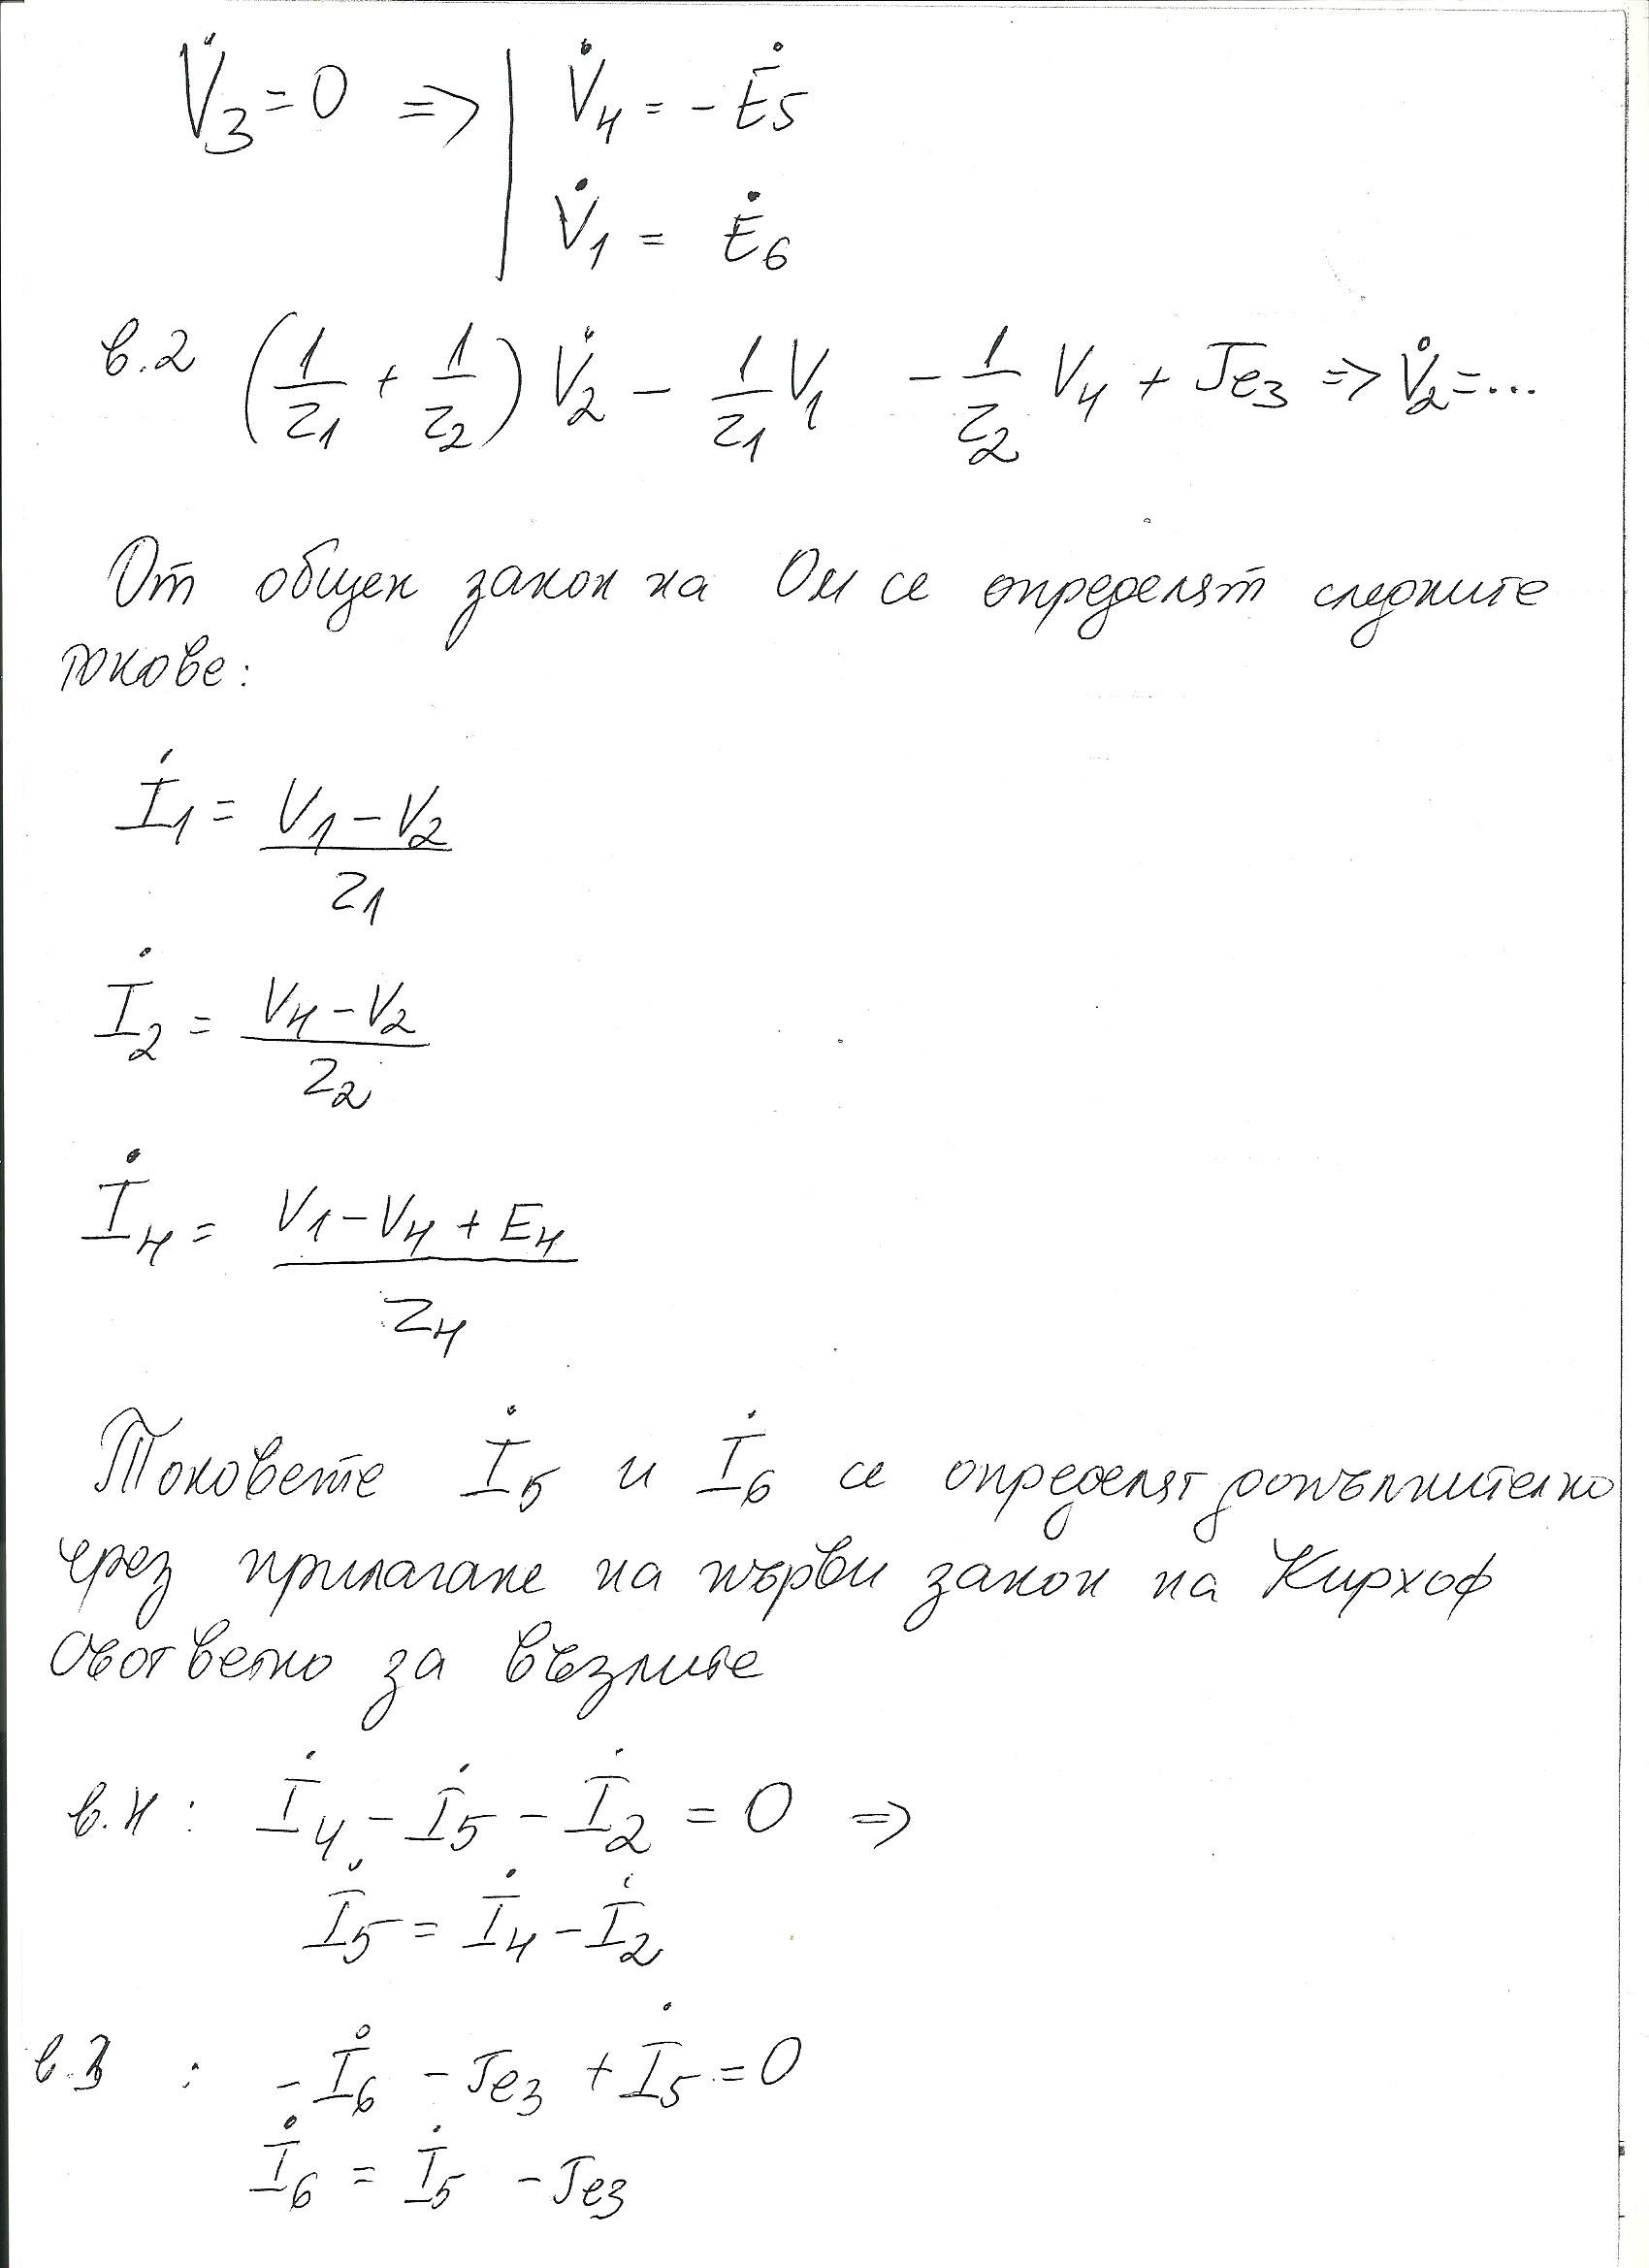 V̇3 = 0 => | V̇4 = - Ė5
V̇1 = Ė6
в.2 (1/Z1 + 1/Z2) V̇2 - 1/Z1 V1 - 1/Z2 V4 + Jе3 => V̇2 = ...
От общен закон на Ом се определят следните
токове:
İ1 = (V1 - V2)/Z1
İ2 = (V4 - V2)/Z2
İ4 = (V1 - V4 + E4)/Z4
Токовете İ5 и İ6 се определят допълнително
чрез прилагане на първи закон на Кирхоф
съответно за възлите
в.4 : İ4 - İ5 - İ2 = 0 =>
İ5 = İ4 - İ2
в.3 : - İ6 - Jе3 + İ5 = 0
İ6 = İ5 - Jе3